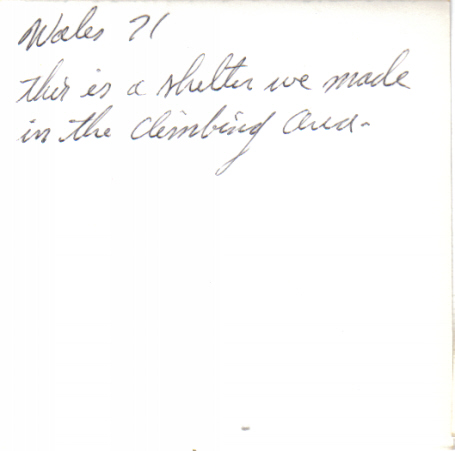 Wales 71
this is a shelter we made
in the climbing area-